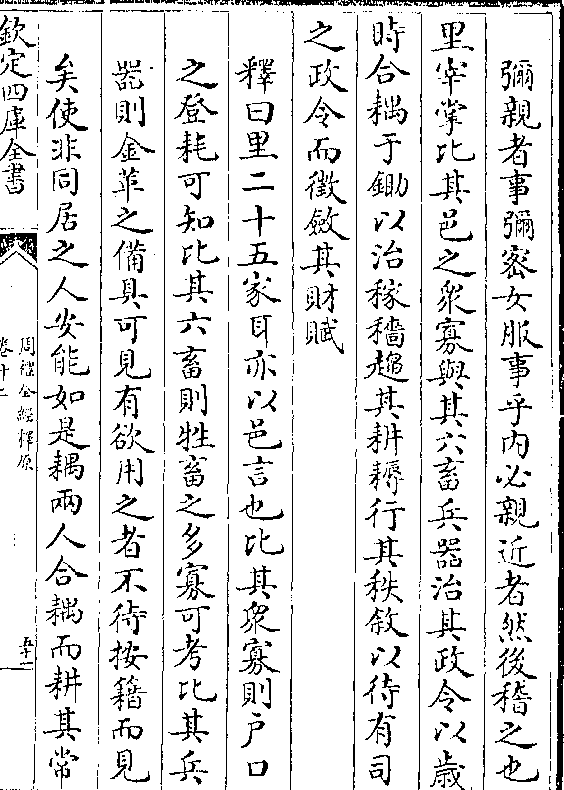 彌親者事彌密女服事乎內必親近者然後稽之也
里宰掌比其邑之衆寡與其六畜兵器治其政令以歲
時合耦于鋤以治稼穡趨其耕耨行其秩敘以待有司
之政令而徵斂其財賦
釋曰里二十五家耳亦以邑言也比其衆寡則戶口
之登耗可知比其六畜則牲畜之多寡可考比其兵
器則金革之備具可見有欲用之者不待按籍而見
矣使非同居之人安能如是耦兩人合耦而耕其常
欽定四庫全書
周禮全經釋原
卷十二
五十一